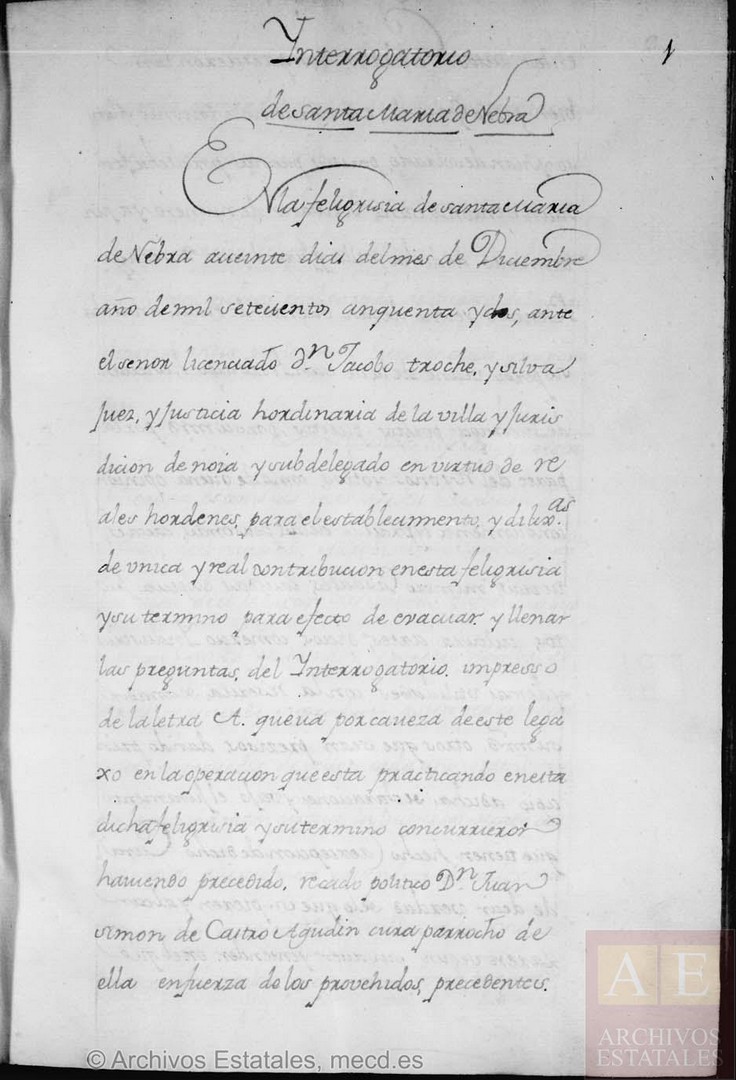 Interrogatorio
1
de Santa Maria de Nebra
En la feligrisia de santa Maria
de Nebra aveinte dias del mes de Diciembre
año de mil setecientos cinquenta ydos, ante
el senor licenciado Dn. Jacobo troche, y silva
Juez, y Justicia hordinaria de la villa y Juris
dicion de noia y subdelegado en virtud de re
ales hordenes, para el establecimiento, y dilix.as
de vnica y real contribucion en esta feligrisia
y su termino para efecto de evacuar y llenar
las preguntas, del Interrogatorio. impresso
de la letra A. que va por caveza de este lega
xo en la operacion que esta practicando en esta
dicha feligrisia y su termino concurrieron
haviendo precedido, recado politico Dn. Juan
simon de Castro Agudin cura parrocho de
ella en fuerza de los provehidos, precedentes.
© Archivos Estatales, mecd.es
AE
ARCHIVOS
ESTATALES